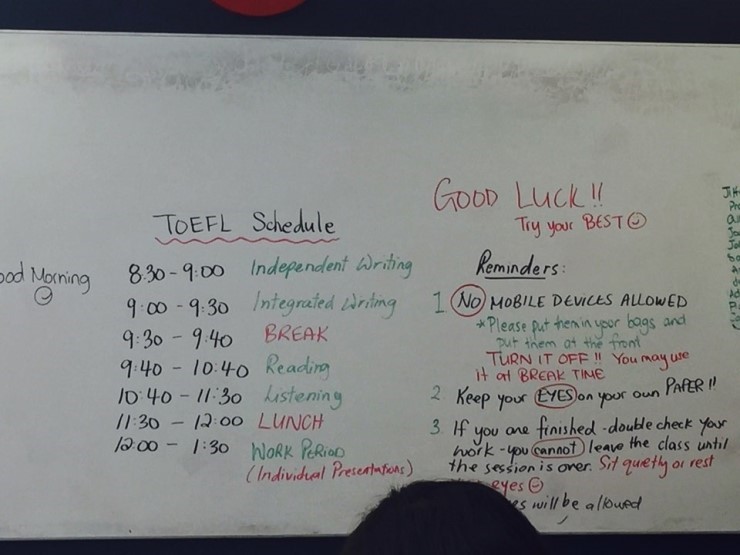 GOOD LUCK!!
Try your BEST
TOEFL Schedule
ood Morning
8:30 - 9:00 Independent Writing
9:00 - 9:30 Integrated Writing
9:30 - 9:40 BREAK
9:40 - 10:40 Reading
10:40 - 11:30 Listening
11:30 - 12:00 LUNCH
12:00 - 1:30 WORK PERIOD
(Individual Presentations)
Reminders:
1 NO MOBILE DEVICES ALLOWED
*Please put them in your bags and
put them at the front
TURN IT OFF!! You may use
it at BREAK TIME
2. Keep your EYES on your own PAPER!!
3. If you are finished - double check your
work - you cannot leave the class until
the session is over. Sit quietly or rest
eyes
es will be allowed